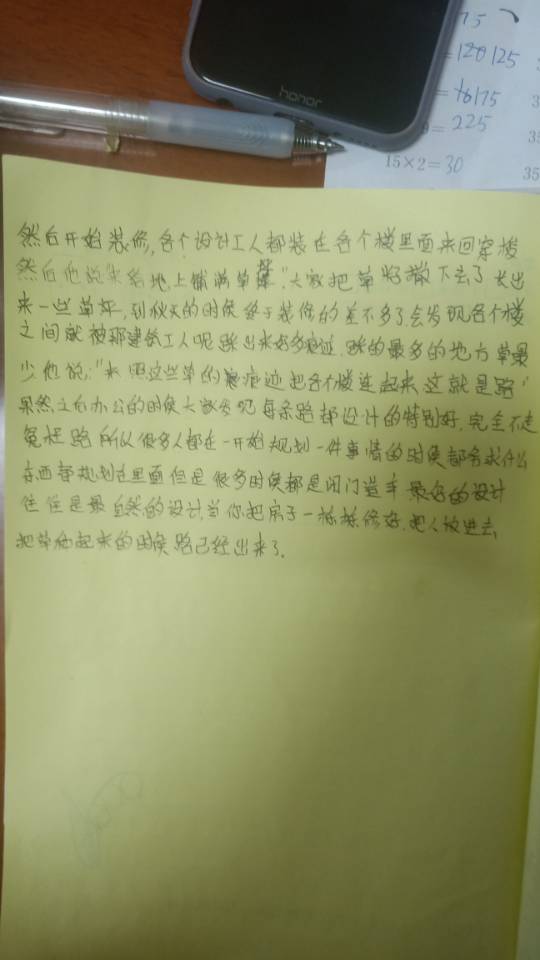 75
=120125
=16175
9=225
15×2=30
35
35
35
honor
然后开始装修,各个设计工人都装在各个楼里面来回穿梭
然后他说来给地上铺满草籽"大家把草籽撒下去了长出
来一些草坪,到秋天的时候终于装修的差不多了,会发现各个楼
之间就被那建筑工人呢踩出来好多痕迹,踩的最多的地方草最
少他说:"来照这些草的痕迹把各个楼连起来这就是路"
果然之后办公的时候大家发现每条路都设计的特别好,完全不走
冤枉路所以很多人都在一开始规划一件事情的时候都会求什么
东西都规划在里面但是很多时候都是闭门造车最好的设计
往往是最自然的设计,当你把房子一栋栋修好,把人放进去,
把草铺起来的时候路已经出来了。